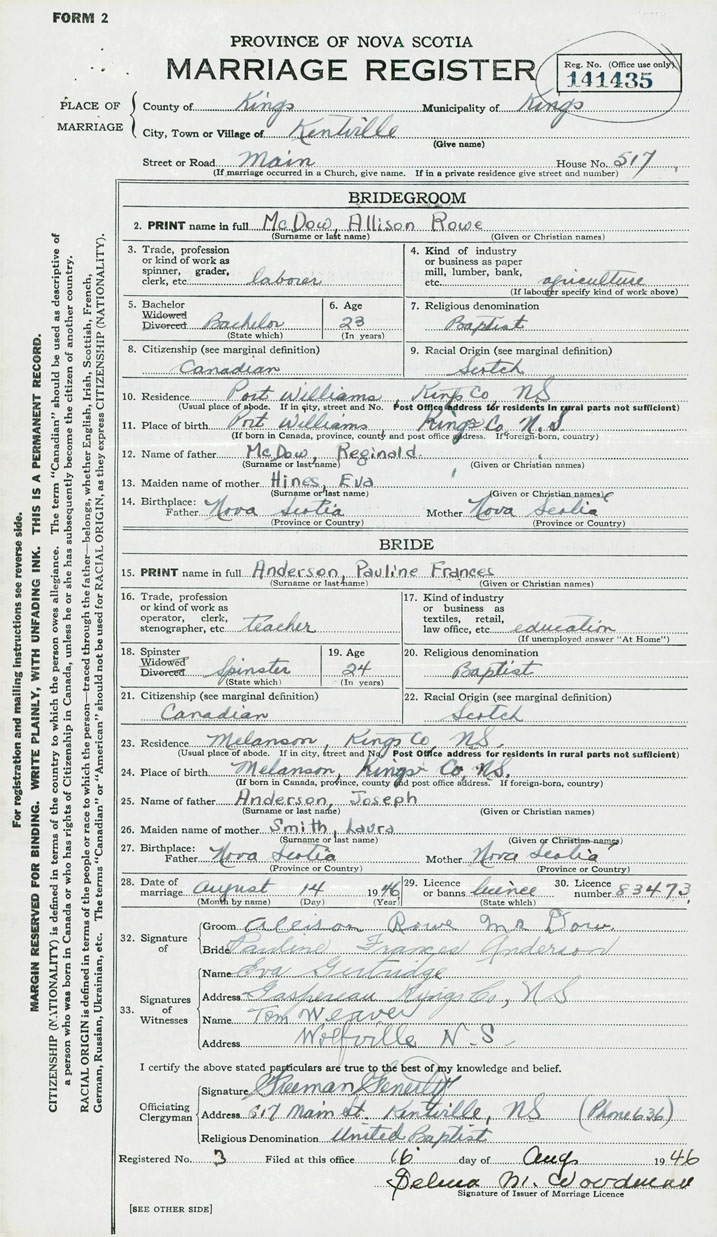 FORM 2
PROVINCE OF NOVA SCOTIA
MARRIAGE REGISTER
Reg. No. (Office use only)
141435
PLACE OF MARRIAGE
County of Kings Municipality of Kings
City, Town or Village of Kentville
(Give name)
Street or Road Main House No. 517
(If marriage occurred in a Church, give name. If in a private residence give street and number)
BRIDEGROOM
2. PRINT name in full McDow, Allison Rowe
(Surname or last name) (Given or Christian names)
3. Trade, profession or kind of work as spinner, grader, clerk, etc. laborer
4. Kind of industry or business as paper mill, lumber, bank, etc. agriculture
(If labourer specify kind of work above)
5. Bachelor Widowed Divorced Bachelor
(State which)
6. Age 23
(In years)
7. Religious denomination
Baptist
8. Citizenship (see marginal definition)
Canadian
9. Racial Origin (see marginal definition)
Scotch
10. Residence Port Williams, Kings Co. NS
(Usual place of abode. If in city, street and No. Post Office address for residents in rural parts not sufficient)
11. Place of birth Port Williams, Kings Co. N.S.
(If born in Canada, province, county and post office address. If foreign-born, country)
12. Name of father McDow, Reginald
(Surname or last name) (Given or Christian names)
13. Maiden name of mother Hines, Eva
(Surname or last name) (Given or Christian names)
14. Birthplace: Father Nova Scotia Mother Nova Scotia
(Province or Country) (Province or Country)
BRIDE
15. PRINT name in full Anderson, Pauline Frances
(Surname or last name) (Given or Christian names)
16. Trade, profession or kind of work as operator, clerk, stenographer, etc. teacher
17. Kind of industry or business as textiles, retail, law office, etc. education
(If unemployed answer "At Home")
18. Spinster Widowed Divorced Spinster
(State which)
19. Age 24
(In years)
20. Religious denomination
Baptist
21. Citizenship (see marginal definition)
Canadian
22. Racial Origin (see marginal definition)
Scotch
23. Residence Melanson, Kings Co, NS.
(Usual place of abode. If in city, street and No. Post Office address for residents in rural parts not sufficient)
24. Place of birth Melanson, Kings Co, NS.
(If born in Canada, province, county and post office address. If foreign-born, country)
25. Name of father Anderson, Joseph
(Surname or last name) (Given or Christian names)
26. Maiden name of mother Smith, Laura
(Surname or last name) (Given or Christian names)
27. Birthplace: Father Nova Scotia Mother Nova Scotia
(Province or Country) (Province or Country)
28. Date of marriage August 14 1946
(Month by name) (Day) (Year)
29. Licence or banns licence
(State which)
30. Licence number 83473
32. Signature of
Groom Allison Rowe Mc Dow
Bride Pauline Frances Anderson
33. Signatures of Witnesses
Name Eva Gertridge
Address Gaspereau Kings Co, N S
Name Tom Weaver
Address Wolfville N.S.
I certify the above stated particulars are true to the best of my knowledge and belief.
Officiating Clergyman
Signature Freeman
Address 517 Main St. Kentville, NS (Phone 636)
Religious Denomination United Baptist
Registered No. 3 Filed at this office 16 day of Aug 1946
Selma M. Woodman
Signature of Issuer of Marriage Licence
[SEE OTHER SIDE]
For registration and mailing instructions see reverse side.
MARGIN RESERVED FOR BINDING. WRITE PLAINLY, WITH UNFADING INK. THIS IS A PERMANENT RECORD.
CITIZENSHIP (NATIONALITY) is defined in terms of the country to which the person owes allegiance. The term "Canadian" should be used as descriptive of
a person who was born in Canada or who has rights of Citizenship in Canada, unless he or she has subsequently become the citizen of another country.
RACIAL ORIGIN is defined in terms of the people or race to which the person—traced through the father—belongs, whether English, Irish, Scottish, French,
German, Russian, Ukrainian, etc. The terms "Canadian" or "American" should not be used for RACIAL ORIGIN, as they express CITIZENSHIP (NATIONALITY).